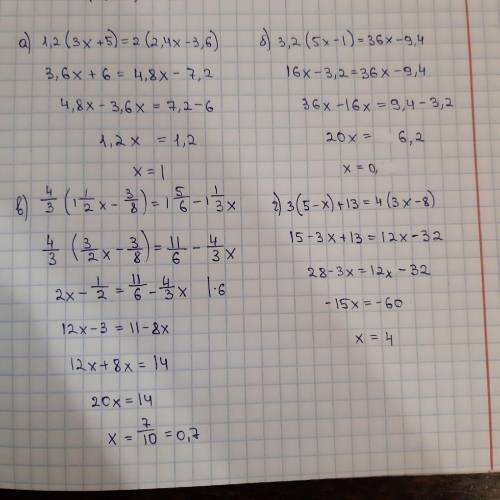 а) 1,2(3x+5)=2(2,4x-3,6)
3,6x+6=4,8x-7,2
4,8x-3,6x=7,2-6
1,2x=1,2
x=1
б) 3,2(5x-1)=36x-9,4
16x-3,2=36x-9,4
36x-16x=9,4-3,2
20x= 6,2
x=0,
в) 4/3 (1 1/2 x - 3/8) = 1 5/6 - 1 1/3 x
4/3 (3/2 x - 3/8) = 11/6 - 4/3 x
2x - 1/2 = 11/6 - 4/3 x |·6
12x-3=11-8x
12x+8x=14
20x=14
x = 7/10 = 0,7
г) 3(5-x)+13=4(3x-8)
15-3x+13=12x-32
28-3x=12x-32
-15x=-60
x=4